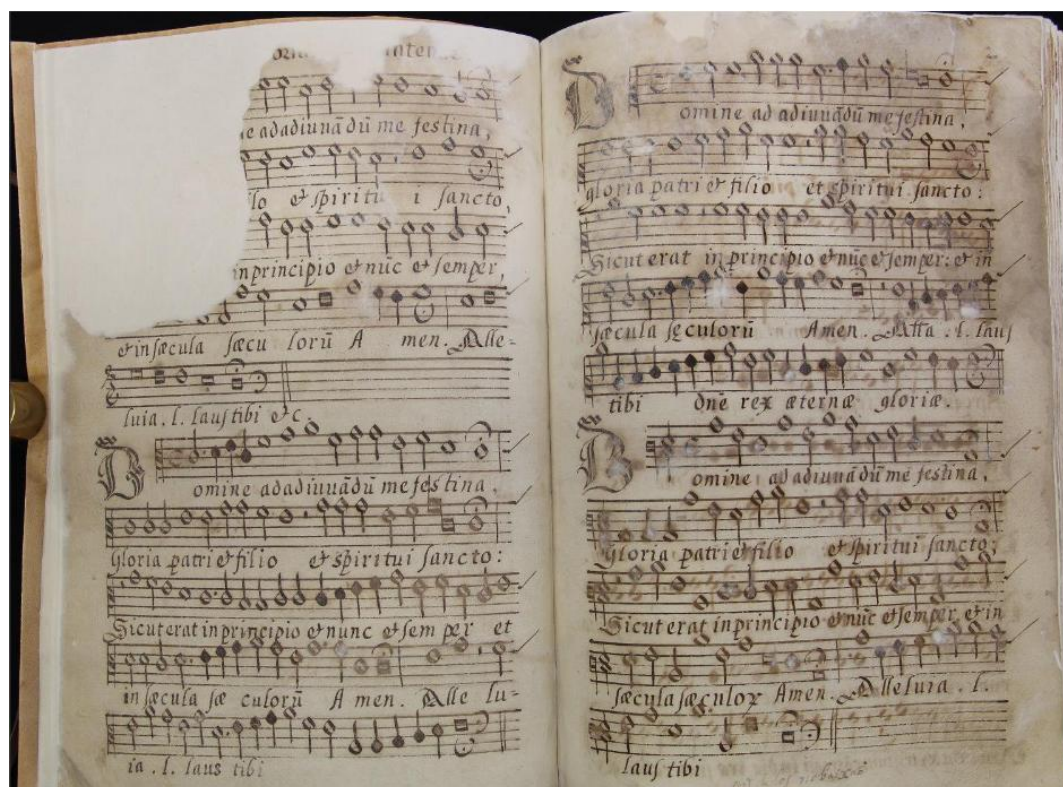 e adadiuuãdũ me festina,
lo & spiritu i sancto,
in principio & nũc & semper,
& in sæcula sæcu lorũ A men. Alle-
luia. l. laus tibi &c.
Domine adadiuuãdũ me festina.
Gloria patri & filio & spiritui sancto:
Sicut erat in principio & nunc & sem per et
in sæcula sæ culorũ A men. Alle lu=
ia. l. laus tibi
Domine ad adiuuãdũ me festina,
gloria patri & filio et spiritui sancto:
Sicut erat in principio & nũc & semper: & in
sæcula sęculorũ Amen. l. laus
tibi dñe rex æternæ gloriæ.
Domine ad adiuuãdũ me festina,
Gloria patri & filio & spiritui sancto;
Sicut erat in principio & nũc & semper, & in
sæcula sæculoꝝ Amen. Alleluia. l.
laus tibi